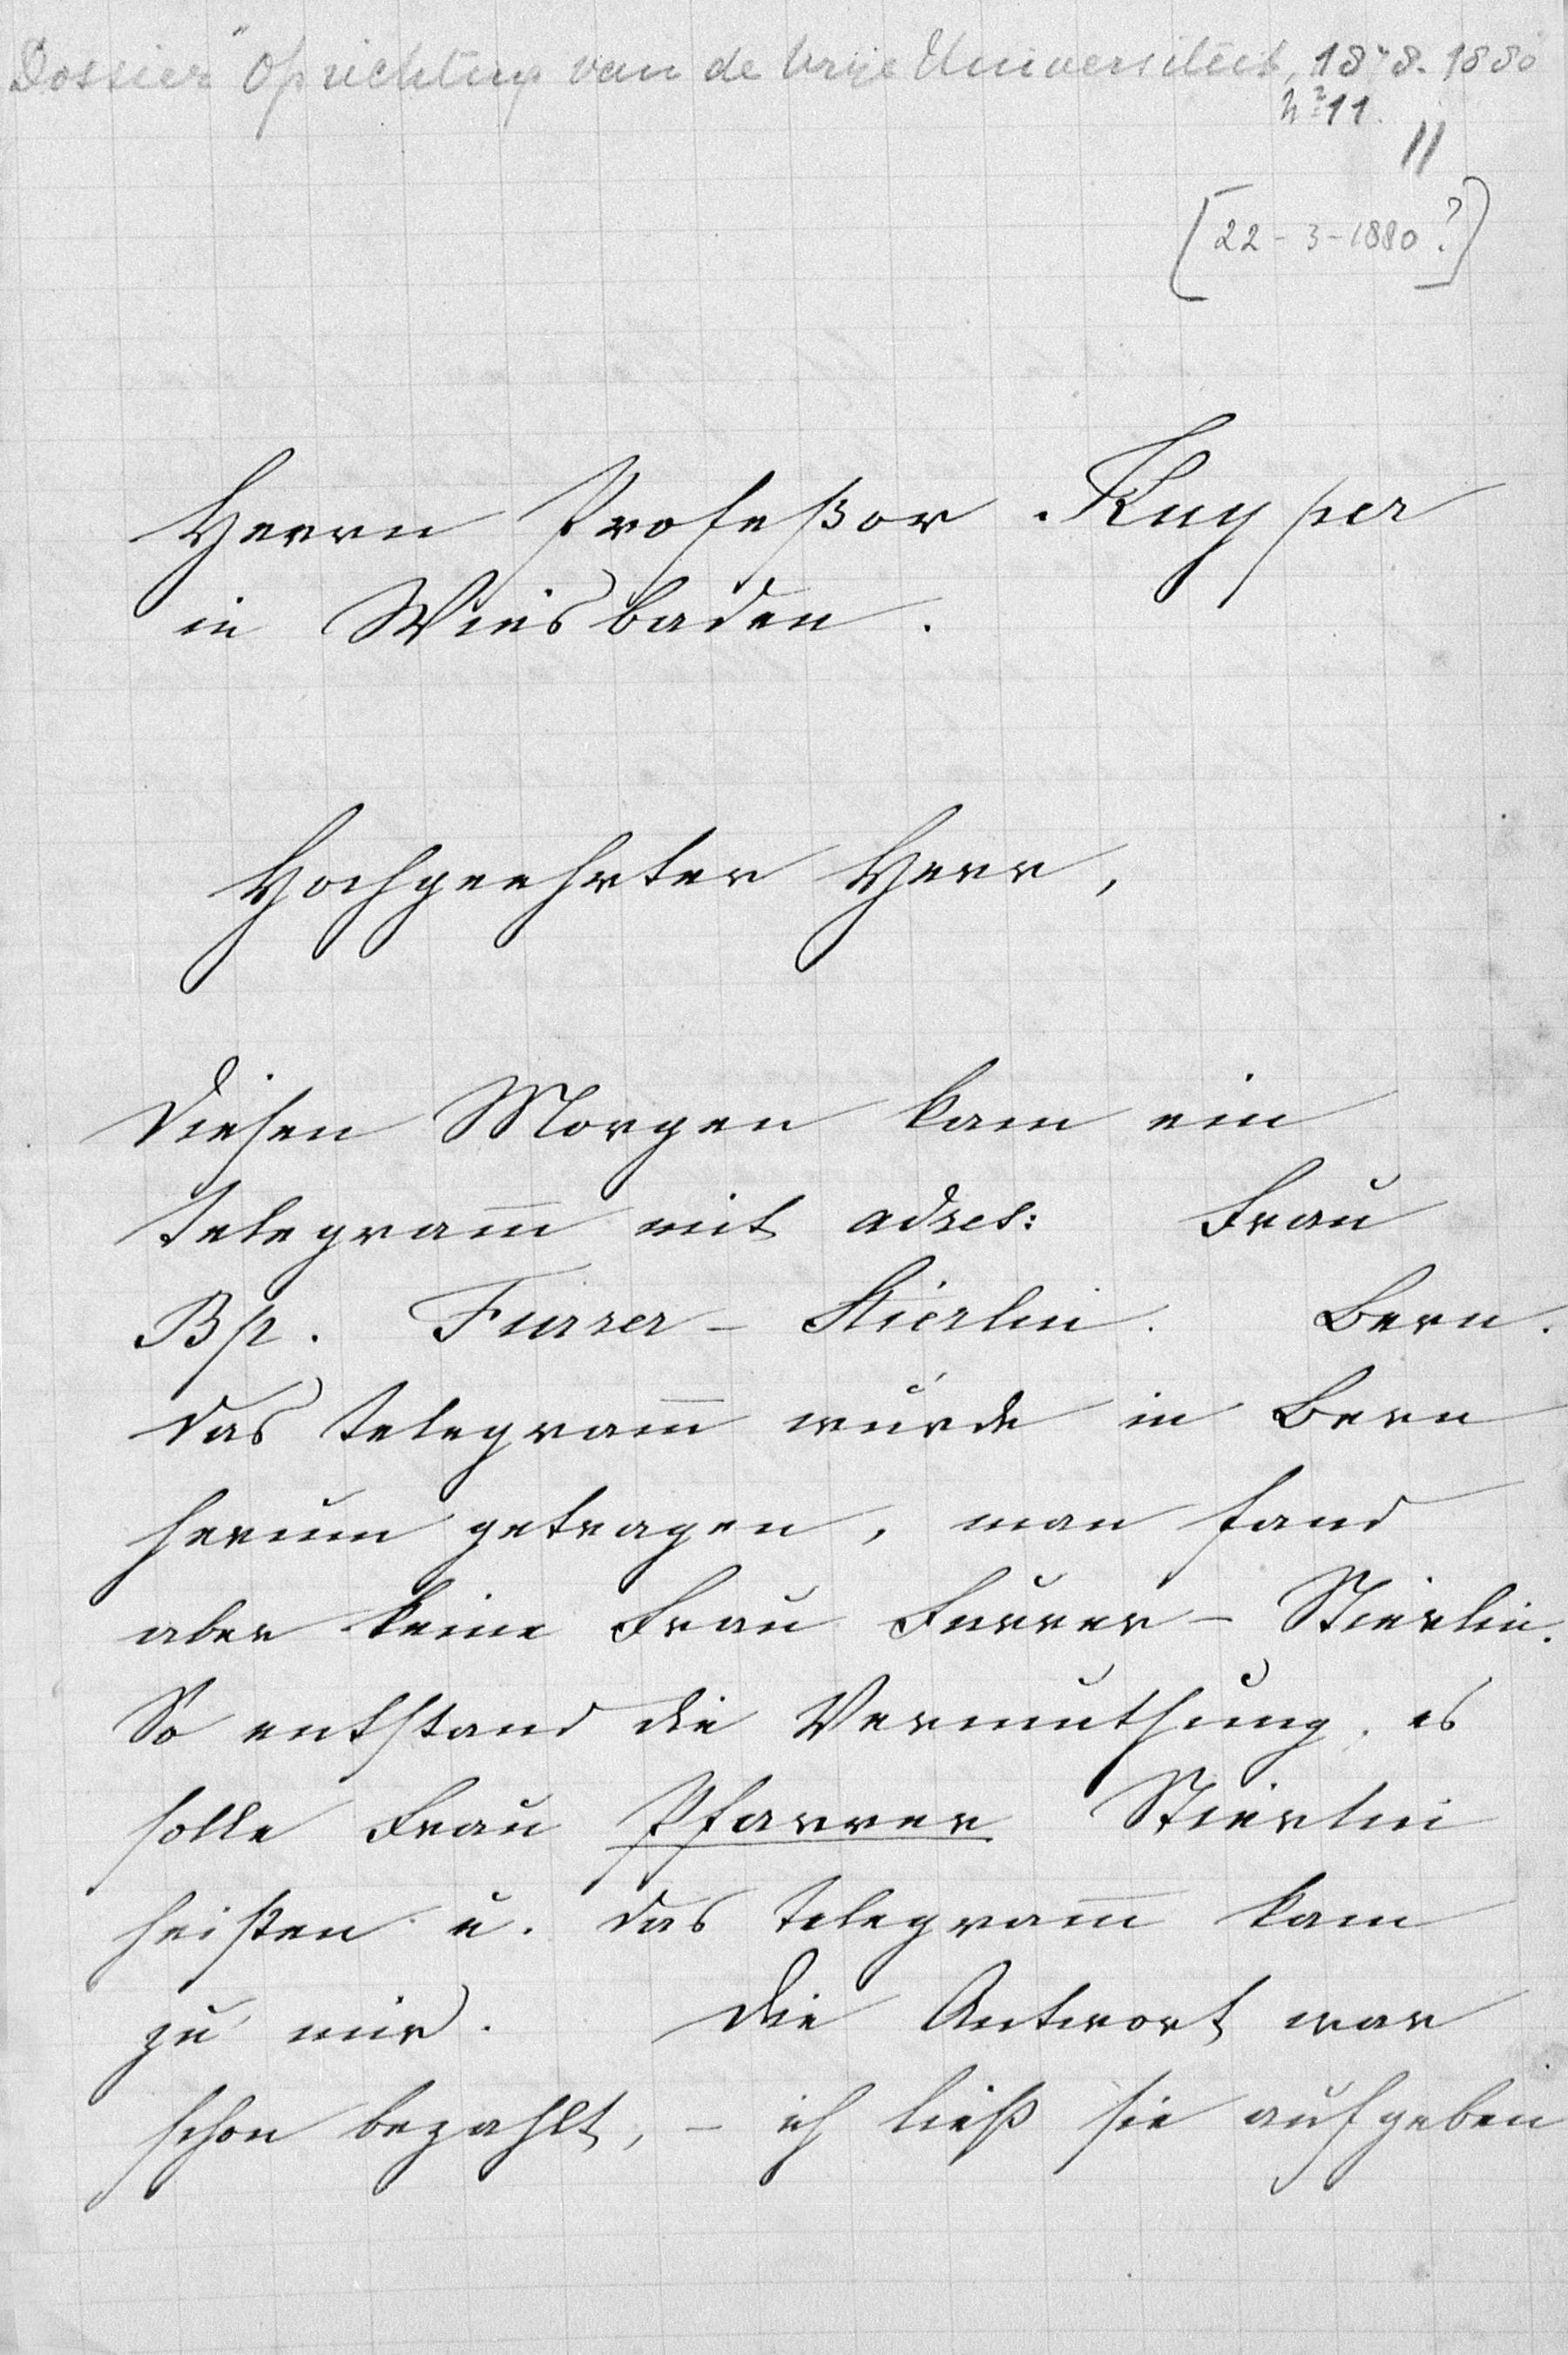 Dossier "Oprichting van de Vrije Universiteit, 1878-1880
No 11.
11
[22-3-1880?]
Herrn Profeßor Kuyper
in Wiesbaden.
Hochgeehrter Herr,
Diesen Morgen kam ein
Telegram̅ mit adres: Frau
Bp. Furrer-Stierlin. Bern.
Das Telegram̅ wurde in Bern
herum getragen, man fand
aber keine Frau Furrer-Stierlin.
So entstand die Vermuthung, es
solle Frau Pfarrer Stierlin
heißen u. das Telegram̅ kam
zu mir. Die Antwort war
schon bezahlt, – ich ließ sie aufgeben